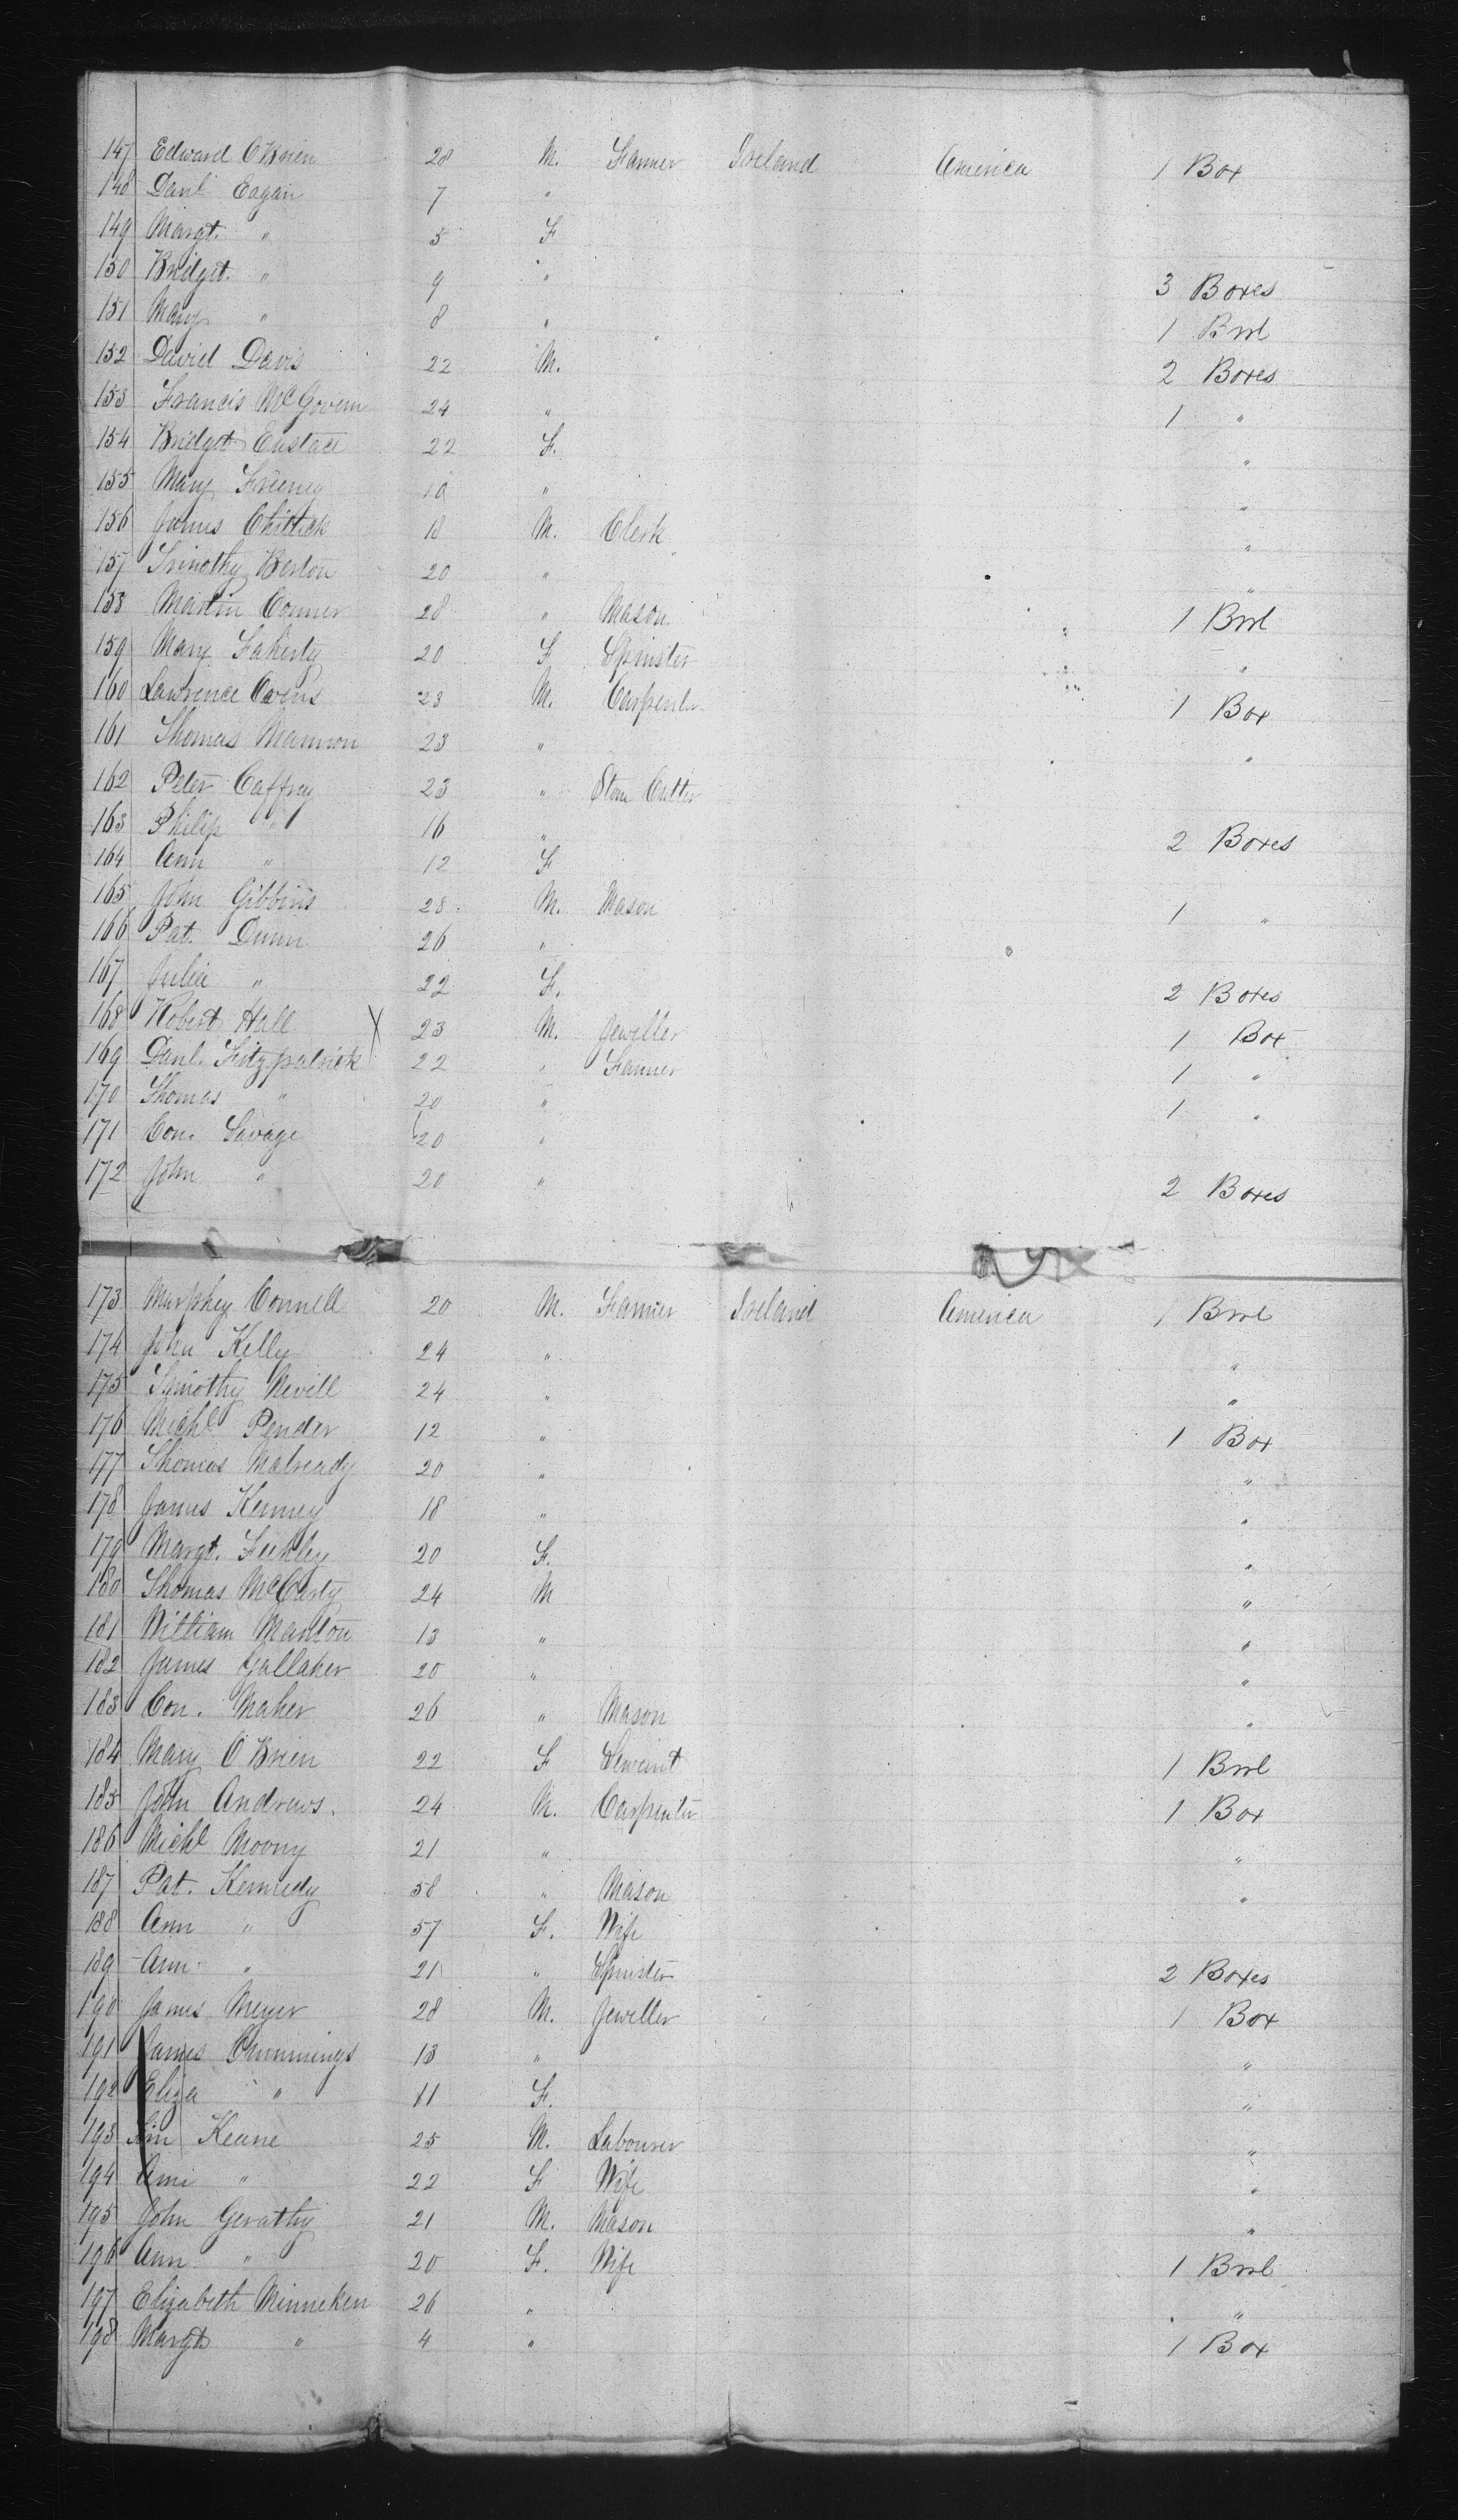 147 Edward O'Brien 28 M. Farmer Ireland America 1 Box
148 Danl Eagan 7 "
149 Margt. " 5 F
150 Bridget. " 9 " 3 Boxes
151 Mary " 8 " 1 Brrl
152 David Davis 22 M. 2 Boxes
153 Francis McGovern 24 " 1 "
154 Bridget Eustace 22 F. "
155 Mary Freeney "  "
156 James Chittick 18 M. Clerk "
157 Timothy Berton 20 " "
158 Martin Conner 28 " Mason 1 Brrl
159 Mary Faherty 20 F Spinster "
160 Lawrence Owens 23 M. Carpenter 1 Box
161 Thomas Mannon 23 " "
162 Peter Caffrey 23 " Stone Cutter
163 Philip " 16 " 2 Boxes
164 Ann " 12 F
165 John Gibbins 28 M. Mason 1 "
166 Pat. Dunn 26 "
167 Julia " 22 F. 2 Boxes
168 Robert Hall X 23 M. Jeweller 1 Box
169 Danl. Fitzpatrick 22 " Farmer 1 "
170 Thomas " 20 " 1 "
171 Con. Savage 20 "
172 John " 20 " 2 Boxes
173 Murphey Connell 20 M. Farmer Ireland America 1 Brrl
174 John Kelly 24 " "
175 Timothy Nevill 24 " "
176 Michl Pender 12 " 1 Box
177 Thomas Malready 20 " "
178 James Kenney 18 " "
179 Margt. 20 F. "
180 Thomas McCarty 24 M "
181 William Manton 13 " "
182 James Gallaher 20 " "
183 Con. Maher 26 " Mason "
184 Mary O'Brien 22 F Servant 1 Brrl
185 John Andrews. 24 M. Carpenter 1 Box
186 Michl Moony 21 " "
187 Pat. Kennedy 58 " Mason "
188 Ann " 57 F. Wife
189 Ann " 21 " Spinster 2 Boxes
190 James Meyer 28 M. Jeweller 1 Box
191 James Cummings 13 " "
192 Eliza " 11 F. "
193 Keane 25 M. Labourer "
194 Ann " 22 F Wife "
195 John Gerathy 21 M. Mason "
196 Ann " 20 F. Wife 1 Brrl
197 Elizabeth Minneken 26 " "
198 Margt " 4 " 1 Box